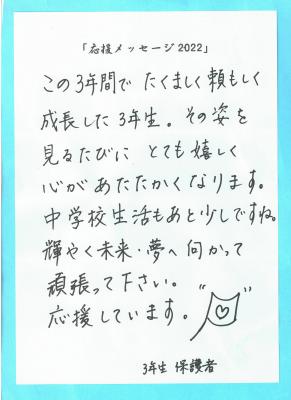 「応援メッセージ2022」
この3年間で たくましく頼もしく
成長した3年生。その姿を
見るたびに とても嬉しく
心があたたかくなります。
中学校生活もあと少しですね。
輝やく未来・夢へ向かって
頑張って下さい。
応援しています。
3年生 保護者